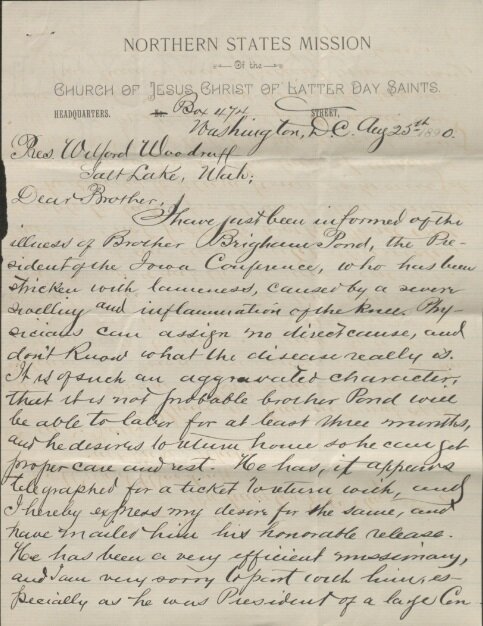 NORTHERN STATES MISSION
Of the
CHURCH OF JESUS CHRIST OF LATTER DAY SAINTS.
HEADQUARTERS. No. Box 474 STREET,
Washington, D.C. Aug 25th 1890.
Pres. Wilford Woodruff
Salt Lake, Utah:
Dear Brother,
I have just been informed of the
illness of Brother Brigham Pond, the Pre-
sident of the Iowa Conference, who has been
stricken with lameness, caused by a severe
swelling and inflammation of the knee. Phy-
sicians can assign no direct cause, and
don't know what the disease really is.
It is of such an aggravated character,
that it is not probable brother Pond will
be able to labor for at least three months,
and he desires to return home so he can get
proper care and rest. He has, it appears
telegraphed for a ticket to return with, and
I hereby express my desire for the same, and
have mailed him his honorable release.
He has been a very efficient missionary,
and I am very sorry to part with him, es-
pecially as he was President of a large Con-